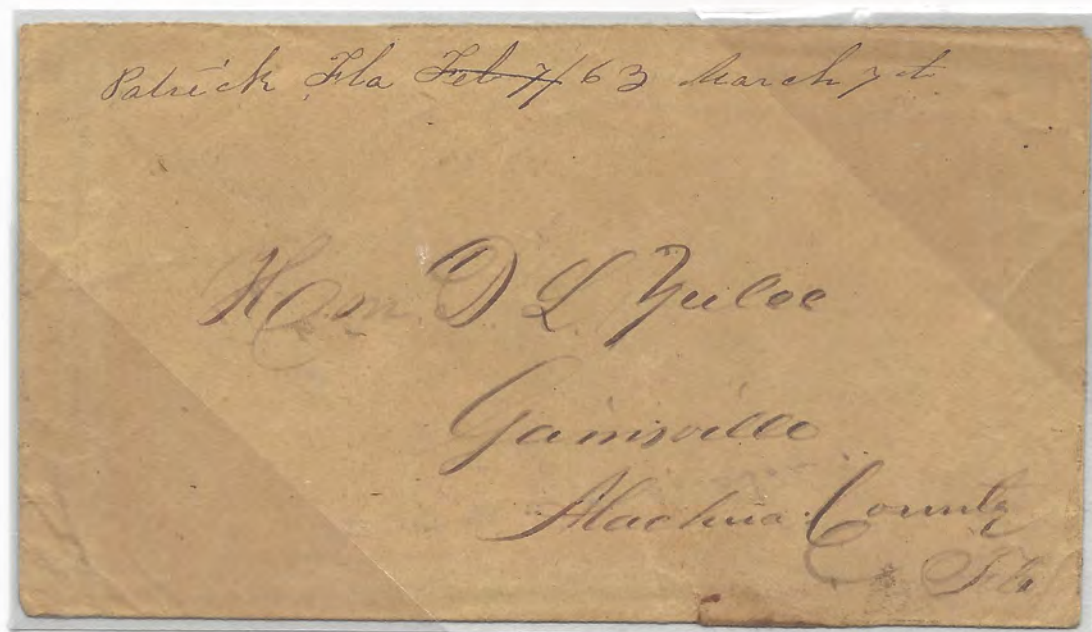 Patrick Fla Feb 7/63 March 7th
Hon. D L Yulee
Gainsville
Alachua County
Fla